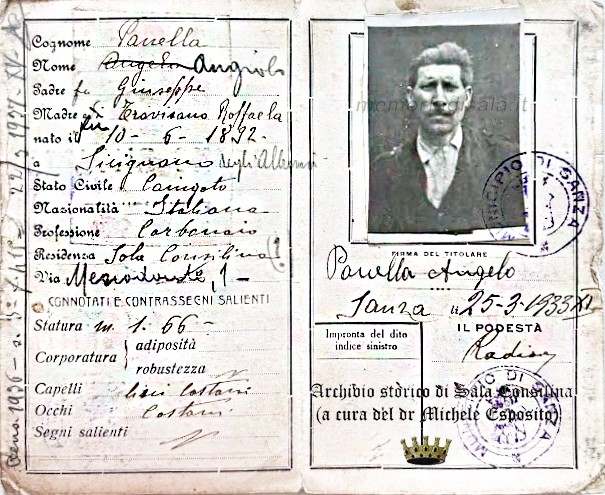 Cognome Panella
Nome Angelo Angiolo
Padre fu Giuseppe
Madre Trovisano Raffaela
nato il 10-6-1892
a Sicignano degli Alburni
Stato Civile Coniugato
Nazionalità Italiana
Professione Carbonaio
Residenza Sala Consilina
Via 1-
CONNOTATI E CONTRASSEGNI SALIENTI
Statura m. 1.66-
Corporatura { adiposità
robustezza
Capelli lisci castani
Occhi castani
Segni salienti
memoriedisala.it
MUNICIPIO DI SANZA
FIRMA DEL TITOLARE
Panella Angelo
Sanza li 25-3-1933 XI
IL PODESTÀ
Impronta del dito
indice sinistro
Archivio stòrico di Sala Consilina
(a cura del dr Michele Esposito)
MUNICIPIO DI SANZA